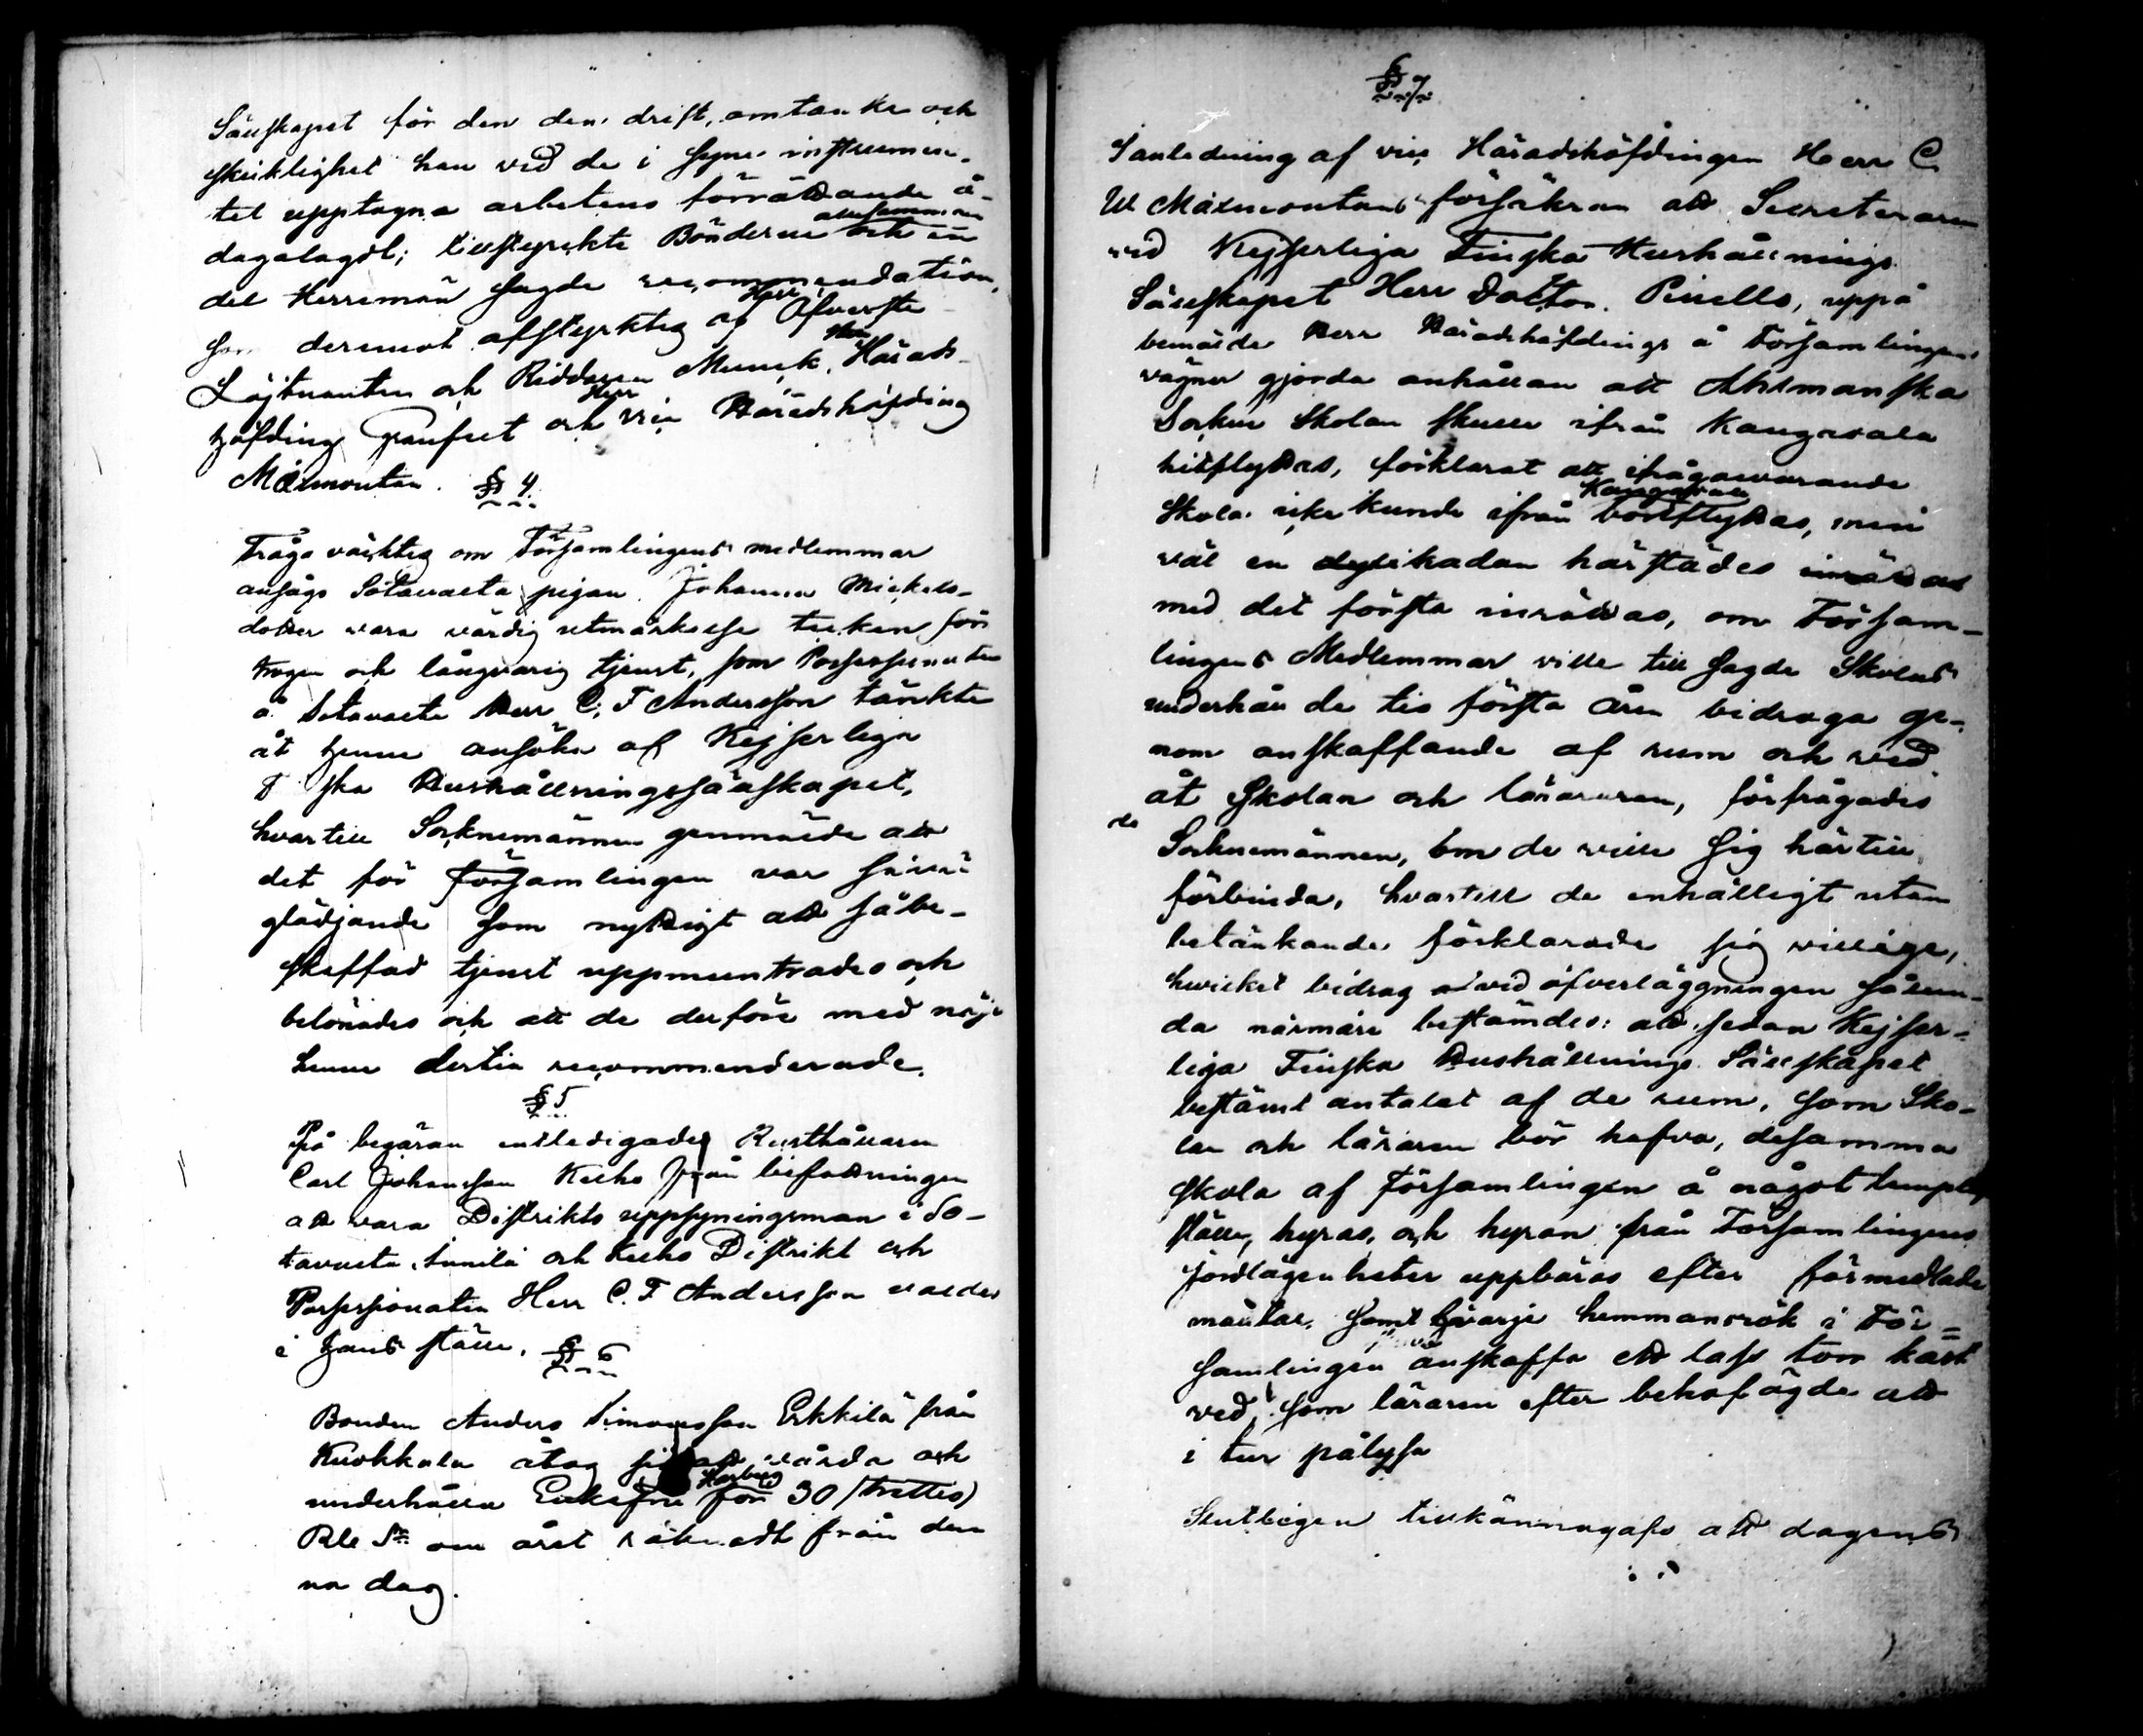 Sällskapet för den den drift, omtanke och
skicklighet han vid de i Syne instrumen-
tet upptagna arbetens förrättande å-
dagalagdt; tillstyrckte Bönderne allesamman och en
del Herremän sagde recommendation,
som deremot afstyrktes af Herr Öfverste
Löjtnanten och Riddaren Munck, Herr Härads-
höfding Pantset och Herr vice Häradshöfding
Mälmontan.
§ 4.
Fråga väcktes om Församlingens medlemmar
ansågo Sotavalta pigan Johanna Mickels-
dotter vara värdig utmärkelse tecken för
trogen och långvarig tjenst, som Possessionaten
å Sotavalta Herr C. F Andersson tänkte
åt henne ansöka af Kejserliga
F ska Hushållningssällskapet,
hvartill Socknemännen genmälde att
det för församlingen var såväl
glädjande som nyttigt att såbe-
skaffad tjenst uppmuntrades och
belönades och att de derföre med nöje
henne dertill recommenderade.
§ 5
På begäran entledigades Rusthållaren
Carl Johansson Keiho från befattningen
att vara Distrikts uppsyningsman i So-
tavalta, Annila och Keiho Distrikt och
Possessionaten Herr C. F Andersson valdes
i hans ställe.
§ 6
Bonden Anders Simonsson Erkkilä från
Kuokkala åtog sig att vårda och
underhålla Enkefru Harberg för 30 (trettio)
Rble Sr. om året räknadt från den
na dag.
§ 7
I anledning af vice Häradshöfdingen Herr C
W Mälmontans försäkran att Secreteraren
vid Kejserliga Finska Hushållnings
Sällskapet Herr Doctor Pinello, uppå
bemälde Herr Häradshöfdings å Församlingens
vägner gjorda anhållan att Ahlmanska
Socken Skolan skulle ifrån Kangasala
hitflyttas, förklarat att ifrågavarande
Skola icke kunde ifrån Kangasala bortflyttas, men
väl en dylik sådan härstädes inrättas
med det första inrättas, om Försam-
lingens Medlemmar ville till sagde Skolas
underhåll de tio första åren bidraga ge-
nom anskaffande af rum och ved
åt Skolan och läraren, förfrågades
de
Socknemännen, om de ville sig härtill
förbinda, hvartill de enhälligt utan
betänkande förklarade sig villige,
hvilket bidrag vid öfverläggningen sålun-
da närmare bestämdes: att sedan Kejser-
liga Finska Hushållnings Sällskapet
bestämt antalet af de rum, som Sko-
lan och läraren bör hafva, desamma
skola af Församlingen å något lämpligt
ställe, hyras, och hyran från Församlingens
jordlägenheter uppbäras efter förmedlade
mantal. Samt hvarje hemmansrök i För-
samlingen anskaffa ett lass torr kast
ved, som läraren efter behof ägde att
i tur pålysa
Slutligen tillkännagafs att dagens